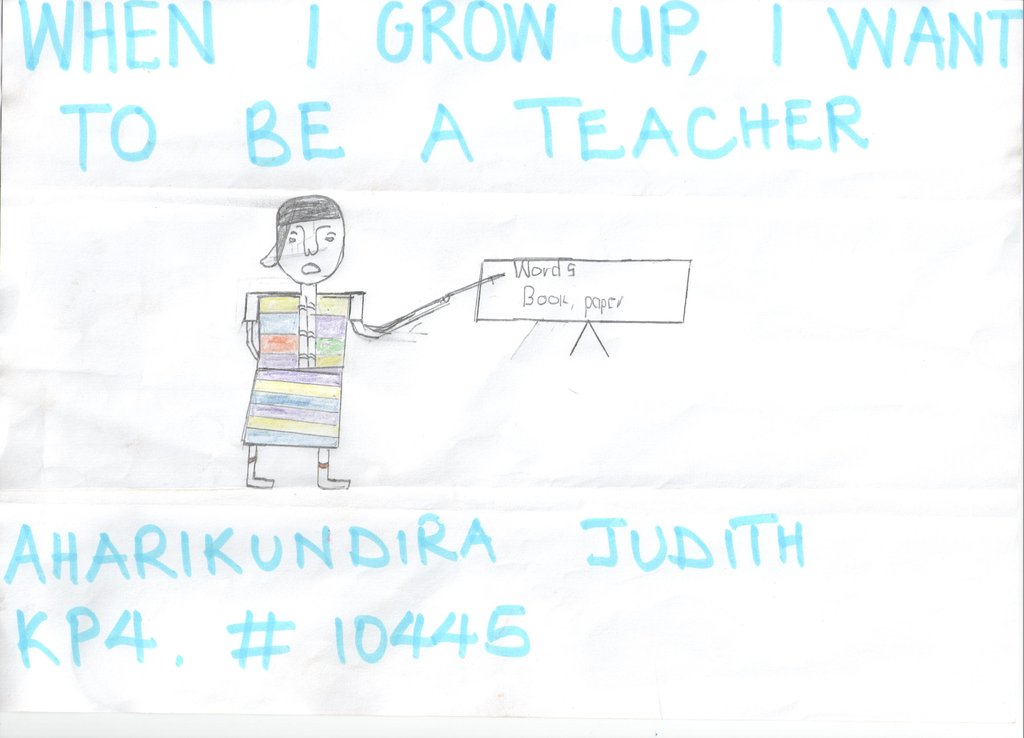 WHEN I GROW UP, I WANT
TO BE A TEACHER
Words
Book, paper
AHARIKUNDIRA JUDITH
KP4. # 10445